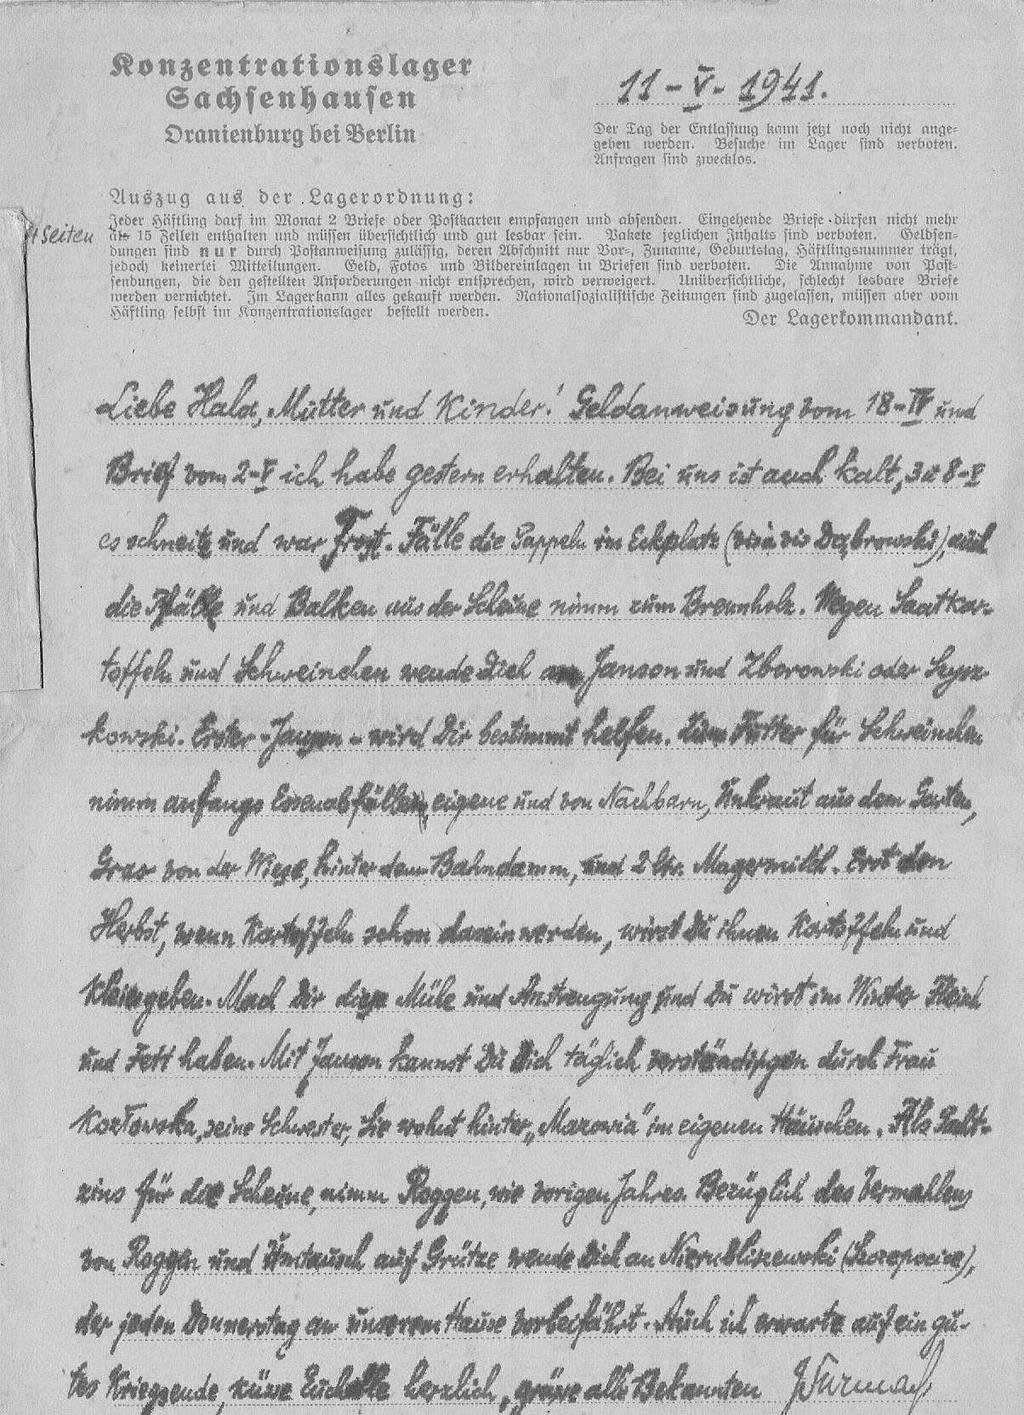 Konzentrationslager
Sachsenhausen
Oranienburg bei Berlin
11-V-1941.
Der Tag der Entlassung kann jetzt noch nicht ange-
geben werden. Besuche im Lager sind verboten.
Anfragen sind zwecklos.
Auszug aus der Lagerordnung:
Jeder Häftling darf im Monat 2 Briefe oder Postkarten empfangen und absenden. Eingehende Briefe dürfen nicht mehr
4 Seiten
als 15 Zeilen enthalten und müssen übersichtlich und gut lesbar sein. Pakete jeglichen Inhalts sind verboten. Geldsen-
dungen sind nur durch Postanweisung zulässig, deren Abschnitt nur Vor-, Zuname, Geburtstag, Häftlingsnummer trägt,
jedoch keinerlei Mitteilungen. Geld, Fotos und Bildereinlagen in Briefen sind verboten. Die Annahme von Post-
sendungen, die den gestellten Anforderungen nicht entsprechen, wird verweigert. Unübersichtliche, schlecht lesbare Briefe
werden vernichtet. Im Lager kann alles gekauft werden. Nationalsozialistische Zeitungen sind zugelassen, müssen aber vom
Häftling selbst im Konzentrationslager bestellt werden.
Der Lagerkommandant.
Liebe Hala, Mutter und Kinder! Geldanweisung vom 18-IV und
Brief vom 2-V ich habe gestern erhalten. Bei uns ist auch kalt, zu 8-V
es schneite und war Frost. Fälle die Pappeln im Eckplatz (vis à vis Dąbrowski), auch
die Pfälle und Balken aus der Scheune nimm zum Brennholz. Wegen Saatkar-
toffeln und Schweinchen wende Dich an Janson und Zborowski oder
kowski. Erster - Janson - wird Dir bestimmt helfen. Zum Futter für Schweinchen
nimm anfangs Essenabfällen, eigene und von Nachbarn, Unkraut aus dem Garten,
Gras von der Wiese, hinter dem Bahndamm, und 2 ltr. Magermilch. Erst den
Herbst, wenn Kartoffeln schon da sein werden, wirst Du ihnen Kartoffeln und
Kleie geben. Mach Dir diese Mühe und Anstrengung und Du wirst im Winter Fleisch
und Fett haben. Mit Janson kannst Du Dich täglich verständigen durch Frau
Kozłowska, seine Schwester, Sie wohnt hinter „Mazovia" im eigenen Häuschen. Als Pacht-
zins für die Scheune, nimm Roggen, wie vorigen Jahres. Bezüglich des Vermahlens
von Roggen und Umtausch auf Grütze wende Dich an
der jeden Donnerstag an unserem Hause vorbeifährt. Auch ich erwarte auf ein gu-
tes Kriegsende, küsse Euch alle herzlich, grüsse alle Bekannten